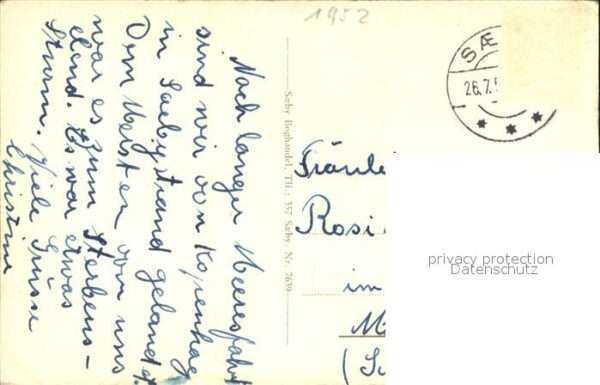 1952
Nach langer Meeresfahrt
sind wir von Kopenhag
in Saebystrand gelandet.
Den Meisten von uns
war es zum Sterbens-
elend. Es war etwas
Sturm. Viele Grüsse
Christine
Sæby Boghandel, Tlf.: 357 Sæby. Nr. 7639
SÆ
26.7.5
Fräule
Rosi
im
M
(S
privacy protection
Datenschutz